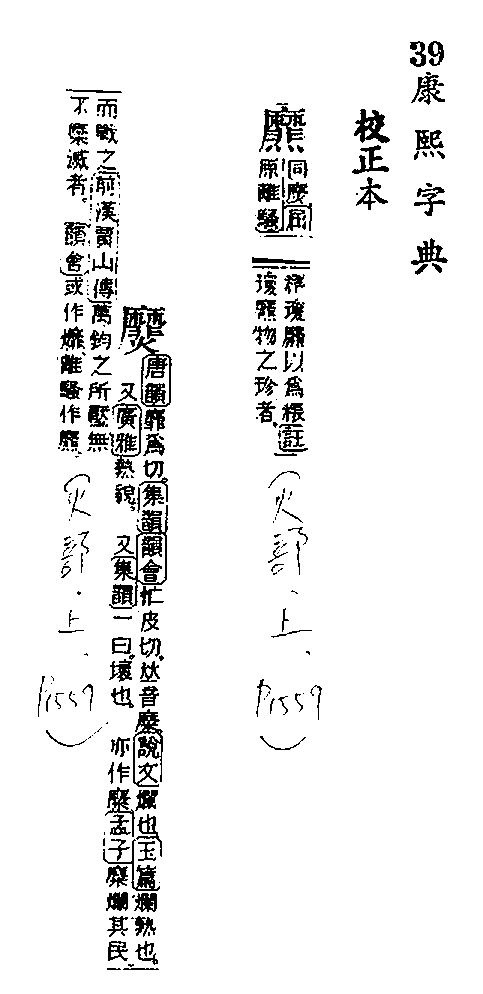 39康熙字典
校正本
同糜屈
原離騷
精瓊爢以為粻註
瓊爢物之珍者
(火部.上、P1559)
唐韻靡為切集韻韻會忙皮切𠀤音糜說文爛也玉篇爛熟也
又廣雅熟貌 又集韻一曰壞也 亦作糜孟子糜爛其民
而戰之前漢賈山傳萬鈞之所壓無
不糜滅者。韻會或作爢離騷作
(火部.上、P1559)